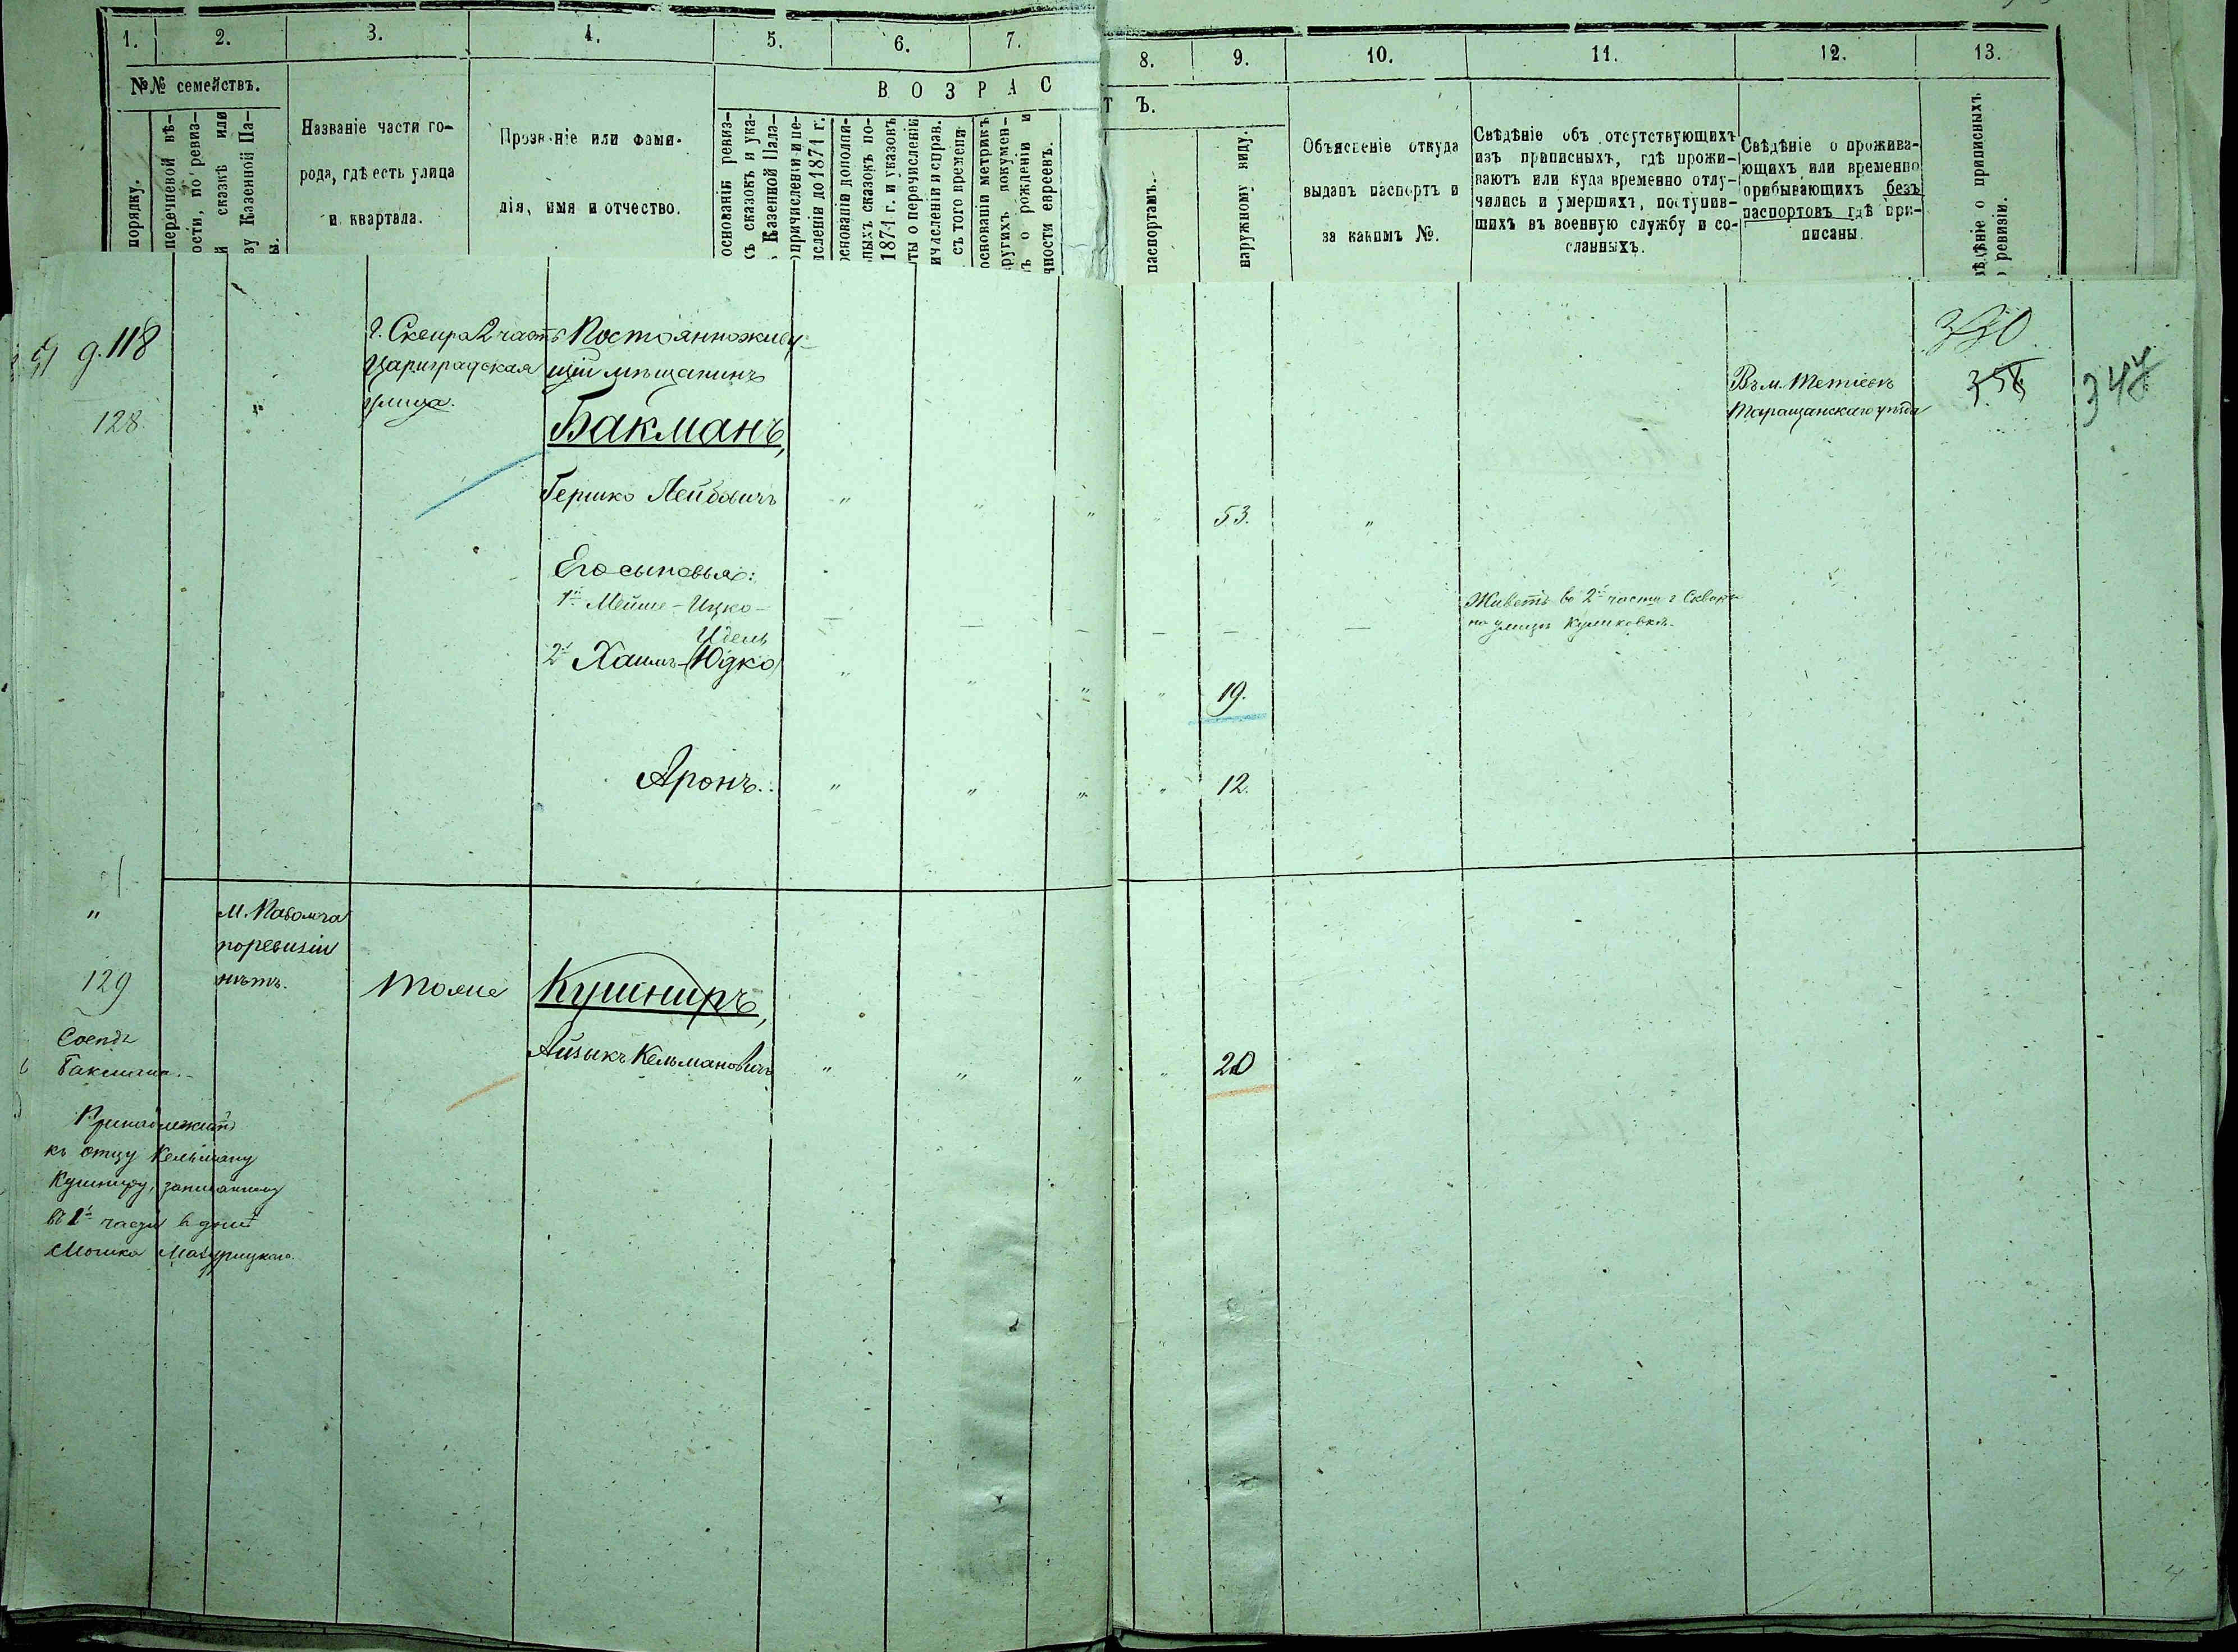 1. 2. 3. 4. 5. 6. 7. 8. 9. 10. 11. 12. 13.
№№ семействъ.
порядку.
перечневой вѣ-
ости, по ревиз-
й сказкѣ или
зу Казенной Па-
ы.
Названіе части го-
рода, гдѣ есть улица
и квартала.
Прозваніе или фами-
лія, имя и отчество.
В О З Р А С Т Ъ.
основаніи ревиз-
къ сказокъ и ука-
Казенной Пала-
причисленіи и пе-
исленіи до 1874 г.
основаніи дополни-
ныхъ сказокъ по-
1874 г. и указовъ
ты о перечисленіи
ичисленіи и справ.
съ того времени
основаніи метрикъ
другихъ докумен-
ъ о рожденіи и
чности евреевъ.
паспортамъ.
наружному виду.
Объясненіе откуда
выданъ паспортъ и
за какимъ №.
Свѣдѣніе объ отсутствующихъ
изъ приписныхъ, гдѣ прожи-
ваютъ или куда временно отлу-
чились и умершихъ, поступив-
шихъ въ военную службу и со-
сланныхъ.
Свѣдѣніе о прожива-
ющихъ или временно
прибывающихъ безъ
паспортовъ гдѣ при-
писаны.
вѣдѣніе о приписныхъ
ревизіи.
д. 118
128
г. Сквира 2 часть
Цариградская
улица.
Постоянноживу-
щій мѣщанинъ
Бакманъ,
Гершко Лейбовичъ " " " " 53. "
Его сыновья:
1й Мейше-Ицко -
Живетъ во 2й части г. Сквиры
на улицѣ Куликовкѣ.
Идель
2й Хаимъ-(Юдко) " " " " 19.
Аронъ. " " " " 12.
Въ м. Тетіевѣ
Таращанскаго уѣзда
358
347
"
129
м. Паволочь
по ревизіи
нѣтъ.
тоже
Кушниръ,
Айзыкъ Кельмановичъ " " " " 20
Сосѣдъ
Бакмана.
Принадлежитъ
къ отцу Кельману
Кушниру, записанному
въ 1й части въ домѣ
Мошка Мазурицкаго.